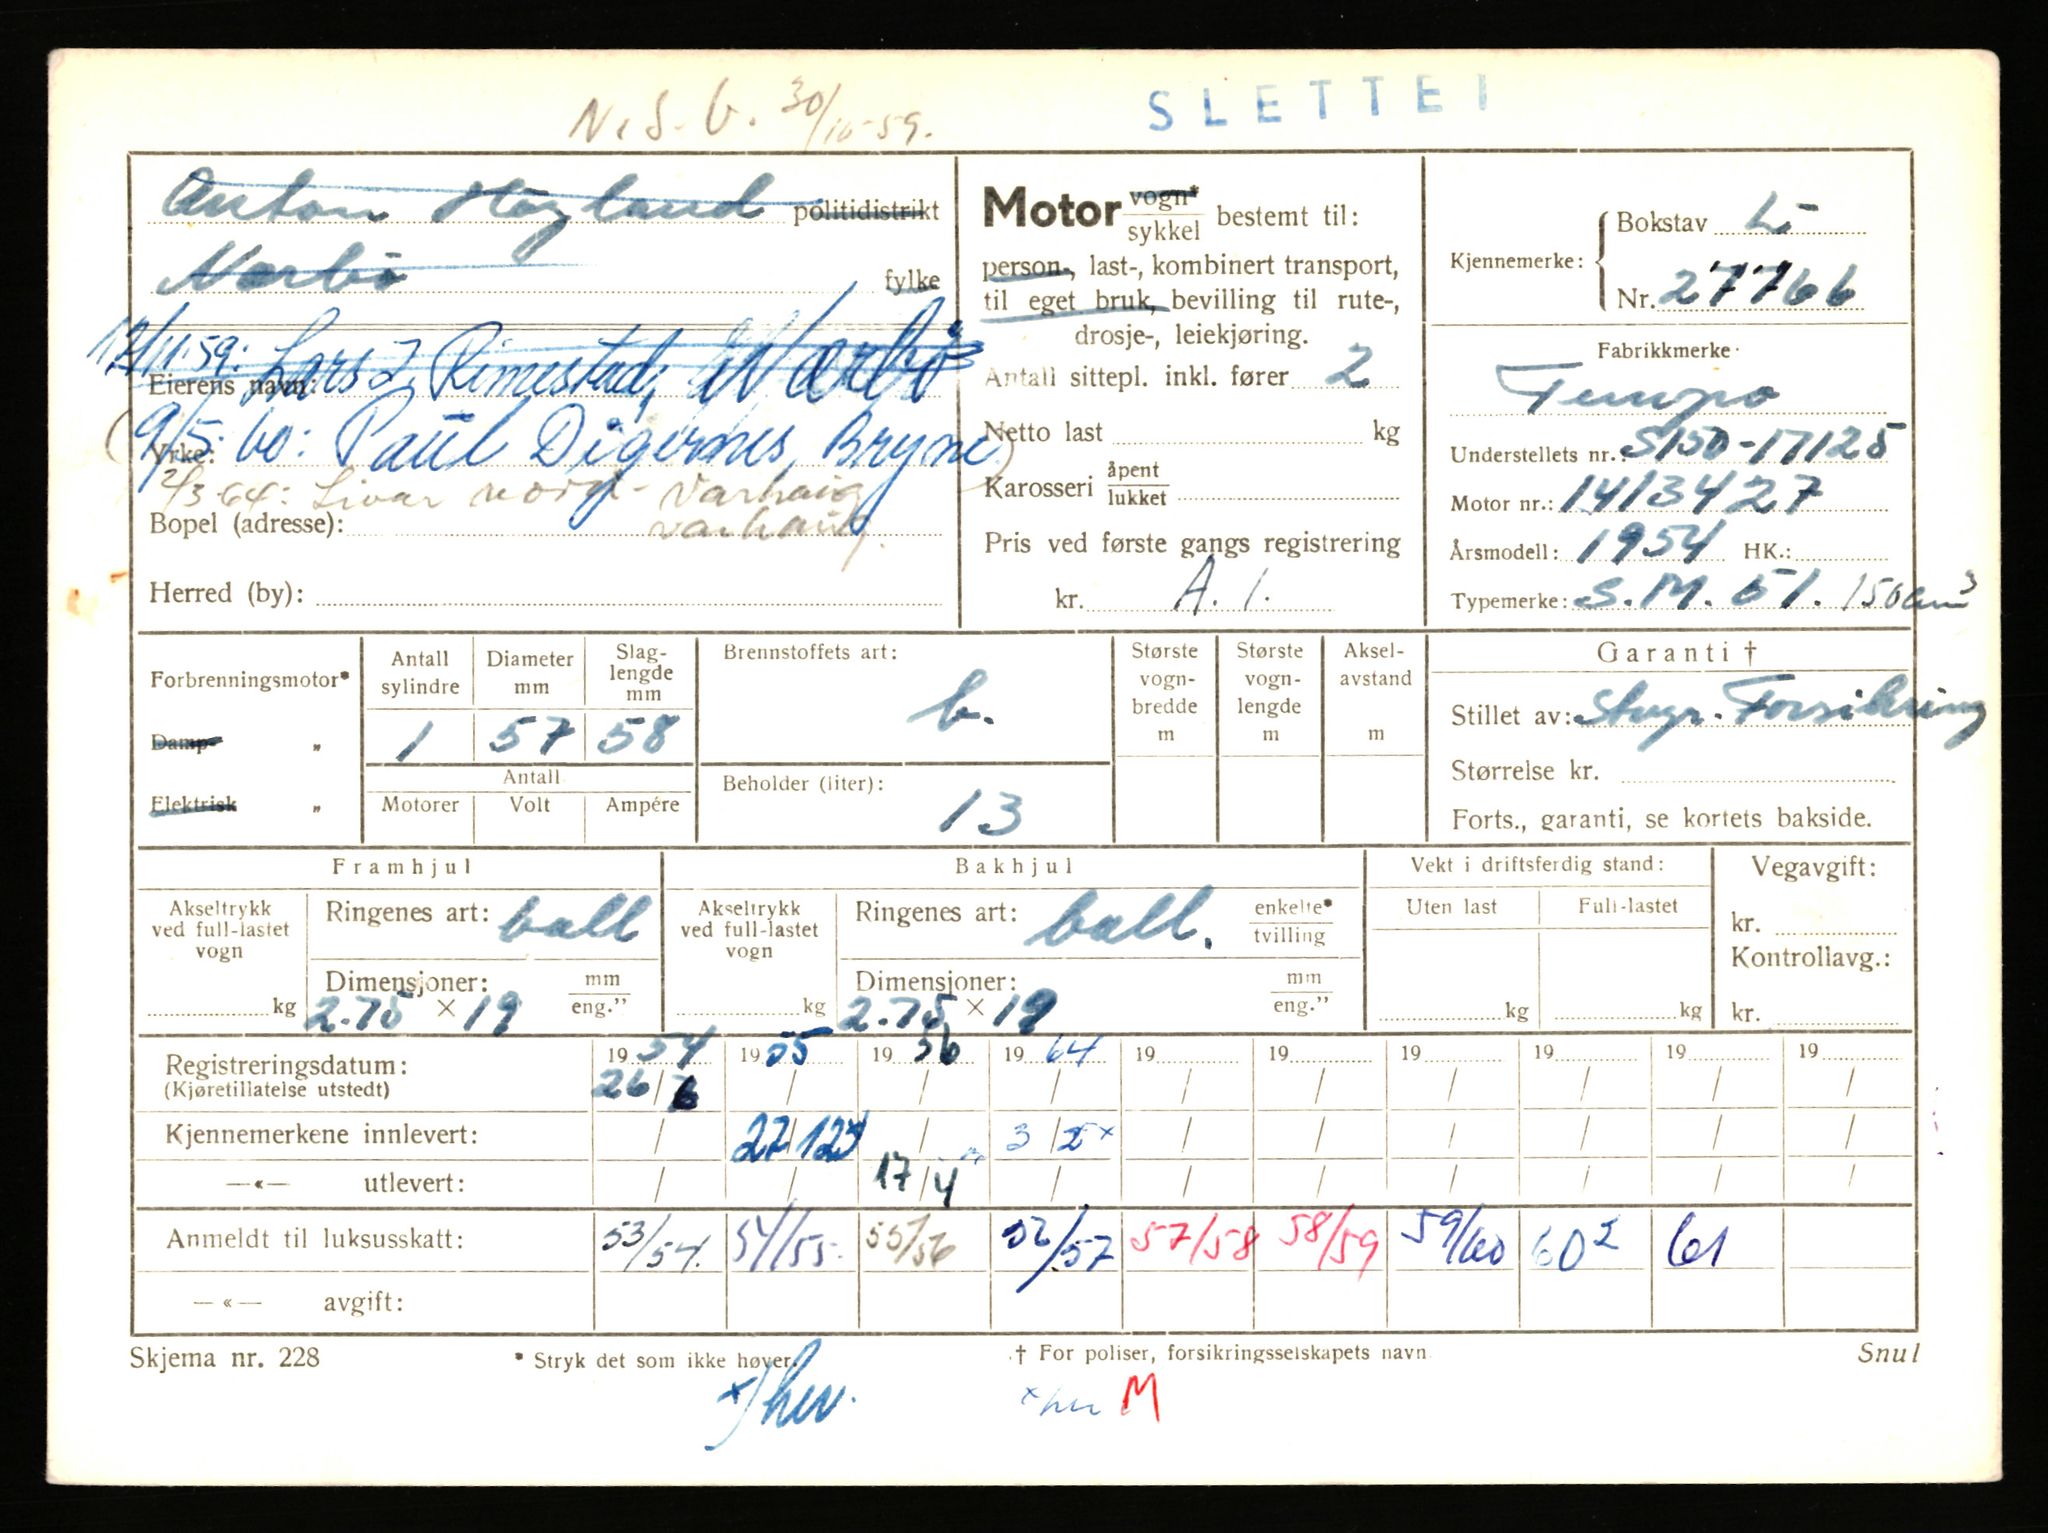 N.S.U. 30/10-59.
SLETTET
Anton Høyland politidistrikt
Nærbø fylke
12/11-59: Lars J. Rimestad, Nærbø
Eierens navn:
(9/5: bo: Paul Digernes, Bryne)
Yrke:
2/3-64: Sivar Varhaug
Varhaug.
Bopel (adresse):
Herred (by):
Motor vogn* sykkel bestemt til:
person-, last-, kombinert transport,
til eget bruk, bevilling til rute-,
drosje-, leiekjøring.
Antall sittepl. inkl. fører 2
Netto last kg
Karosseri åpent lukket
Pris ved første gangs registrering
kr. A. 1.
Kjennemerke:
Bokstav L
Nr. 27766
Fabrikkmerke:
Tempo
Understellets nr.: S150-17125
Motor nr.: 1413427
Årsmodell: 1954 HK.:
Typemerke: S.M. 51. 150 cm³
Forbrenningsmotor*
Damp- „
Elektrisk „
Antall sylindre
1
Diameter mm
57
Slaglengde mm
58
Antall
Motorer Volt Ampére
Brennstoffets art:
b.
Beholder (liter):
13
Største vognbredde m
Største vognlengde m
Akselavstand m
Garanti †
Stillet av: Forsikring
Størrelse kr.
Forts., garanti, se kortets bakside.
Framhjul
Akseltrykk ved full-lastet vogn
kg
Ringenes art: ball
Dimensjoner: mm eng."
2.75 × 19
Bakhjul
Akseltrykk ved full-lastet vogn
kg
Ringenes art: ball. enkelte* tvilling
Dimensjoner: mm eng."
2.75 × 19
Vekt i driftsferdig stand:
Uten last Full-lastet
kg kg
Vegavgift:
kr.
Kontrollavg.:
kr.
Registreringsdatum: 19 54 19 55 19 56 19 64 19 19 19 19 19 19
(Kjøretillatelse utstedt) 26/6 / / / / / / / / /
Kjennemerkene innlevert: / 27/12 / 3/2 x / / / / / /
—«— utlevert: / / 17/4 x / / / / / / /
Anmeldt til luksusskatt: 53/54. 54/55. 55/56 56/57 57/58 58/59 59/60 60² 61
—«— avgift:
Skjema nr. 228
* Stryk det som ikke høver.
† For poliser, forsikringsselskapets navn
Snul
x/hw.
x hw M